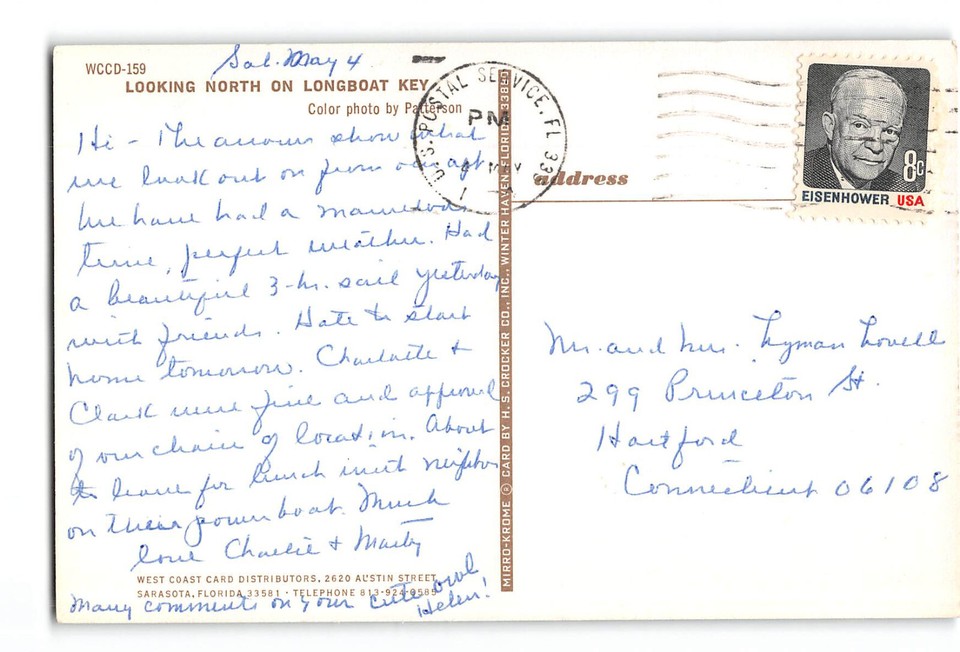 Sat. May 4
WCCD-159
LOOKING NORTH ON LONGBOAT KEY
Color photo by Patterson
Hi - The arrows show what
we look out on from our apt.
We have had a marvelous
time, perfect weather. Had
a beautiful 3-hr. sail yesterday
with friends. Hate to start
home tomorrow. Charlotte +
Clark were fine and approved
of our choice of location. About
to leave for lunch with neighbors
on their power boat. Much
love Charlie + Marty
WEST COAST CARD DISTRIBUTORS, 2620 AUSTIN STREET,
SARASOTA, FLORIDA 33581 · TELEPHONE 813-924-0585
Many comments on your cute owl
Helen!
MIRRO-KROME ® CARD BY H. S. CROCKER CO., INC., WINTER HAVEN, FLORIDA 33880
U.S. POSTAL SERVICE, FL 335
PM
address
8c
EISENHOWER USA
Mr. and Mrs. Lyman Lovell
299 Princeton St.
Hartford
Connecticut 06108